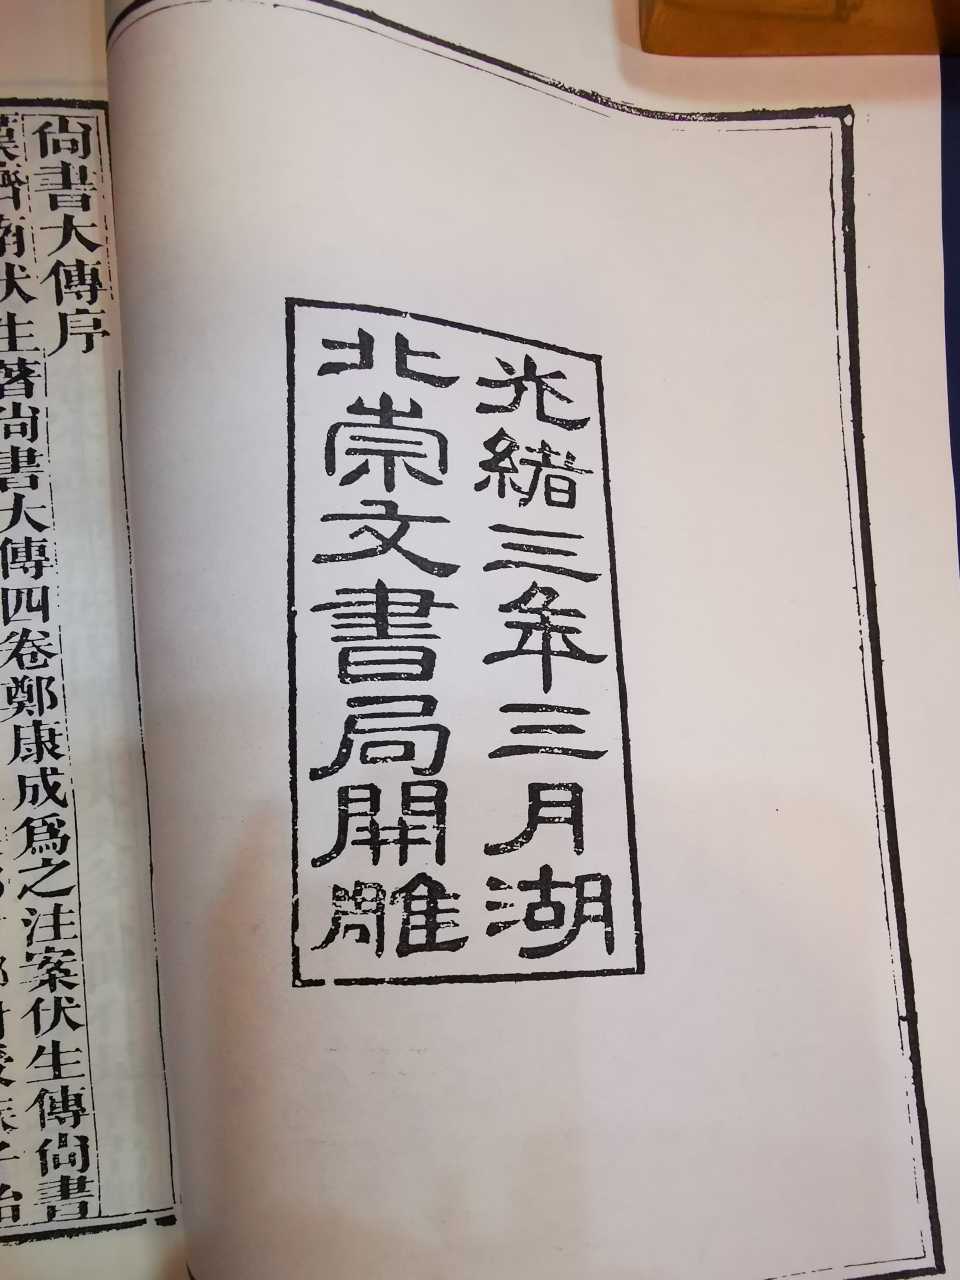 光緒三年三月湖
北崇文書局開雕
尚書大傳序
漢濟南伏生著尚書大傳四卷鄭康成爲之注案伏生傳尚書